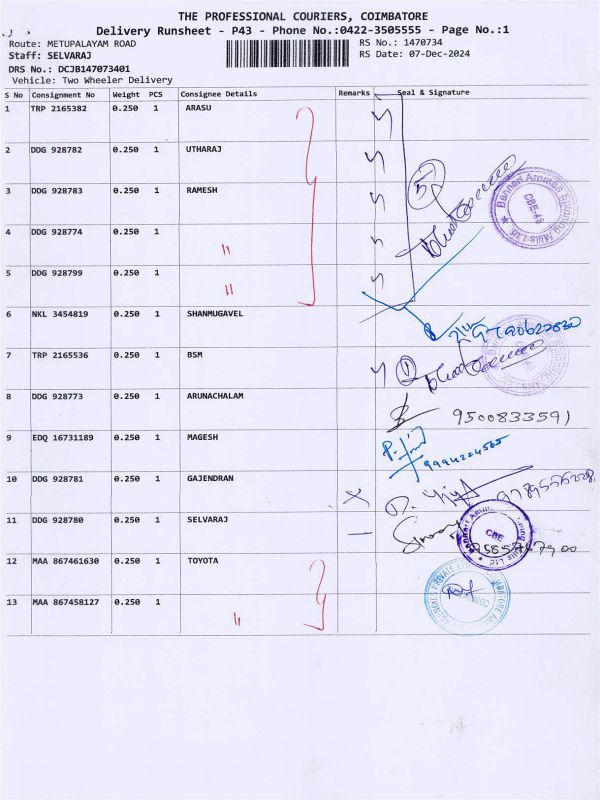 THE PROFESSIONAL COURIERS, COIMBATORE
Delivery Runsheet - P43 - Phone No.:0422-3505555 - Page No.:1
Route: METUPALAYAM ROAD RS No.: 1470734
Staff: SELVARAJ RS Date: 07-Dec-2024
DRS No.: DCJB147073401
Vehicle: Two Wheeler Delivery
S No Consignment No Weight PCS Consignee Details Remarks Seal & Signature
1 TRP 2165382 0.250 1 ARASU
2 DDG 928782 0.250 1 UTHARAJ
3 DDG 928783 0.250 1 RAMESH
Bannari Amman Spinning Mills Ltd
CBE-43
4 DDG 928774 0.250 1 "
5 DDG 928799 0.250 1 "
6 NKL 3454819 0.250 1 SHANMUGAVEL
7 TRP 2165536 0.250 1 BSM 1
8 DDG 928773 0.250 1 ARUNACHALAM 9500833591
9 EDQ 16731189 0.250 1 MAGESH
10 DDG 928781 0.250 1 GAJENDRAN
11 DDG 928780 0.250 1 SELVARAJ
CBE
12 MAA 867461630 0.250 1 TOYOTA
13 MAA 867458127 0.250 1 "